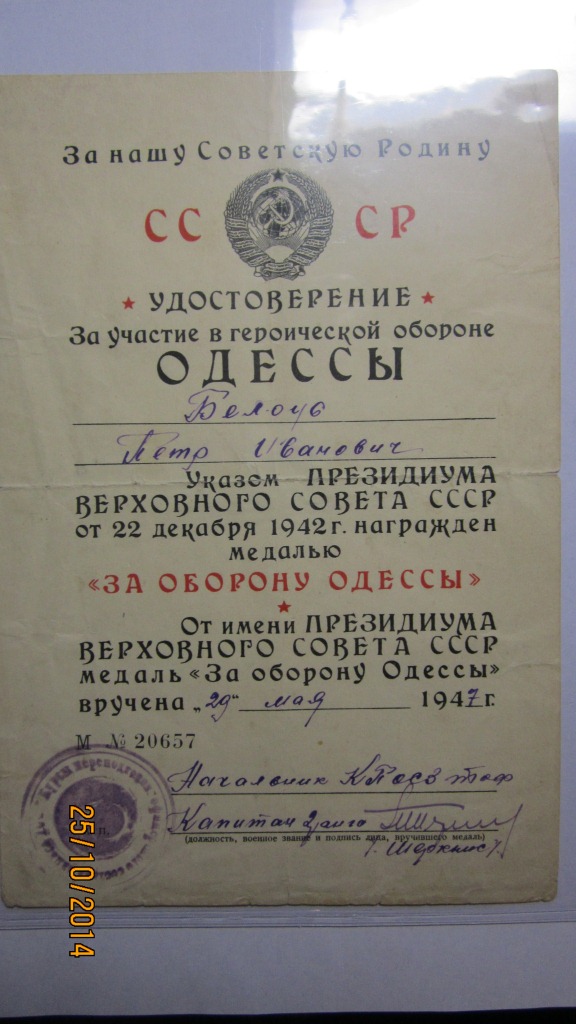 За нашу Советскую Родину
СССР
УДОСТОВЕРЕНИЕ
За участие в героической обороне
ОДЕССЫ
Белоус
Пётр Иванович
Указом ПРЕЗИДИУМА
ВЕРХОВНОГО СОВЕТА СССР
от 22 декабря 1942 г. награжден
медалью
«ЗА ОБОРОНУ ОДЕССЫ»
От имени ПРЕЗИДИУМА
ВЕРХОВНОГО СОВЕТА СССР
медаль «За оборону Одессы»
вручена „29“ мая 1947 г.
М № 20657
Начальник
Капитан 2 ранга
(должность, военное звание и подпись лица, вручившего медаль)
25/10/2014